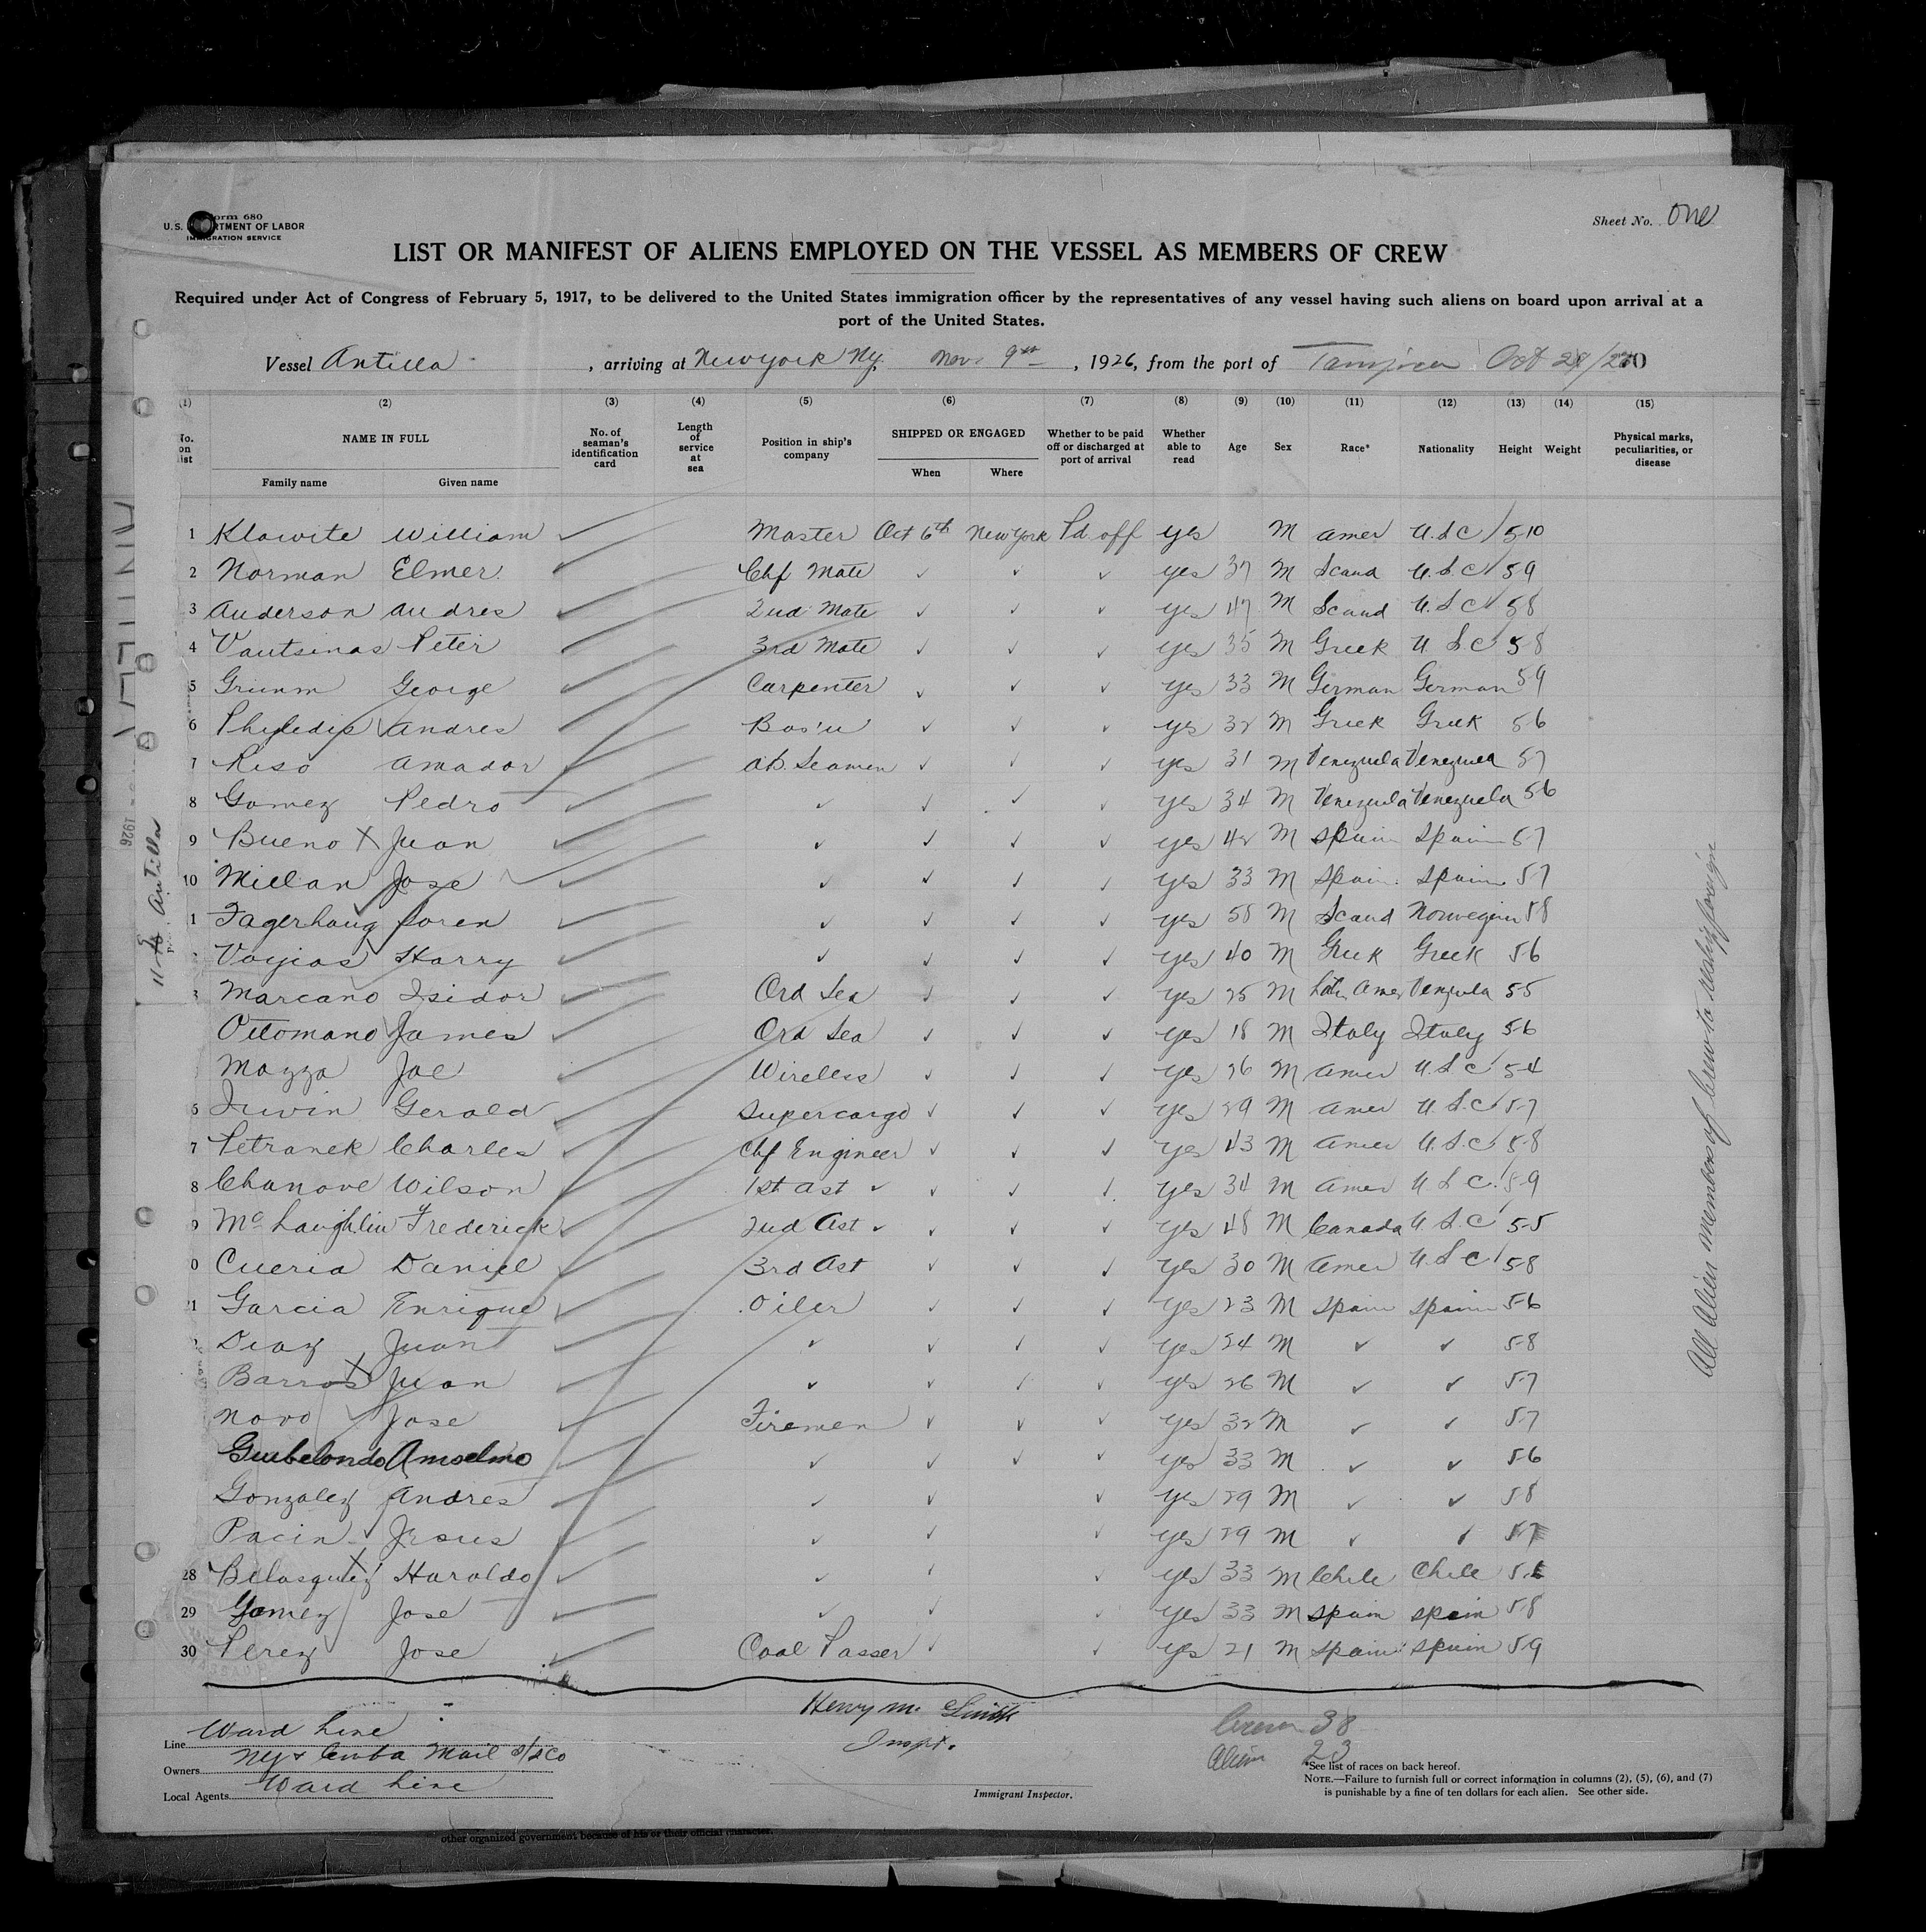 Form 680
U.S. DEPARTMENT OF LABOR
IMMIGRATION SERVICE
Sheet No. One
LIST OR MANIFEST OF ALIENS EMPLOYED ON THE VESSEL AS MEMBERS OF CREW
Required under Act of Congress of February 5, 1917, to be delivered to the United States immigration officer by the representatives of any vessel having such aliens on board upon arrival at a
port of the United States.
Vessel Antilla, arriving at New York Ny, Nov. 9th, 1926, from the port of Tampico Oct
(1) (2) (3) (4) (5) (6) (7) (8) (9) (10) (11) (12) (13) (14) (15)
No. on list NAME IN FULL Family name Given name No. of seaman's identification card Length of service at sea Position in ship's company SHIPPED OR ENGAGED When Where Whether to be paid off or discharged at port of arrival Whether able to read Age Sex Race* Nationality Height Weight Physical marks, peculiarities, or disease
1 Klawite William ✓ Master Oct 6th New York Pd off yes M Amer U.S.C 5-10
2 Norman Elmer ✓ Chf Mate ✓ ✓ ✓ yes 37 M Scand U.S.C 5 9
3 Anderson Andres ✓ 2nd Mate ✓ ✓ ✓ yes 47 M Scand U.S.C 5 8
4 Vautsinas Peter 3rd Mate ✓ ✓ ✓ yes 35 M Greek U S C 5 8
5 Grimm George ✓ Carpenter ✓ ✓ ✓ yes 33 M German German 5 9
6 Andres ✓ Bos'n ✓ ✓ ✓ yes 32 M Greek Greek 5 6
7 Riso Amador ✓ A.B. Seamen ✓ ✓ ✓ yes 31 M Venezuela Venezuela 5 7
8 Gomez Pedro ✓ ✓ ✓ ✓ ✓ yes 34 M Venezuela Venezuela 5 6
9 Bueno X Juan ✓ ✓ ✓ ✓ ✓ yes 42 M Spain Spain 5 7
10 Millan Jose ✓ ✓ ✓ ✓ ✓ yes 33 M Spain Spain 5 7
1 Fagerhaug Soren ✓ ✓ ✓ ✓ ✓ yes 58 M Scand Norwegian 5 8
Voyias Harry ✓ ✓ ✓ ✓ ✓ yes 40 M Greek Greek 5-6
3 Marcano Isidor ✓ Ord Sea ✓ ✓ ✓ yes 25 M Latin Amer Venzuela 5 5
Ottomano James ✓ Ord Sea ✓ ✓ ✓ yes 18 M Italy Italy 5 6
Mazza Joe ✓ Wireless ✓ ✓ ✓ yes 26 M Amer U.S.C 5-4
6 Irwin Gerald ✓ Supercargo ✓ ✓ ✓ yes 29 M Amer U.S.C 5-7
7 Petranek Charles ✓ Chf Engineer ✓ ✓ ✓ yes 43 M Amer U.S.C 5-8
8 Chanove Wilson ✓ 1st Ast ✓ ✓ ✓ ✓ yes 34 M Amer U S C 5-9
9 McLaughlin Frederick ✓ 2nd Ast ✓ ✓ ✓ ✓ yes 48 M Canada U.S.C 5-5
0 Cueria Daniel ✓ 3rd Ast ✓ ✓ ✓ yes 30 M Amer U.S.C 5-8
21 Garcia Enrique ✓ Oiler ✓ ✓ ✓ yes 23 M Spain Spain 5-6
Diaz Juan ✓ ✓ ✓ ✓ ✓ yes 24 M ✓ ✓ 5-8
Barros X Juan ✓ ✓ ✓ ✓ ✓ yes 26 M ✓ ✓ 5-7
Novo ✓ Jose ✓ Firemen ✓ ✓ ✓ yes 32 M ✓ ✓ 5-7
Anselmo ✓ ✓ ✓ ✓ ✓ yes 33 M ✓ ✓ 5-6
Gonzalez Andres ✓ ✓ ✓ ✓ yes 29 M ✓ ✓ 5-8
Pacin ✓ Jesus ✓ ✓ ✓ ✓ yes 29 M ✓ ✓ 5-7
28 Belasquez X Haroldo ✓ ✓ ✓ ✓ yes 33 M Chile Chile
29 Gomez Jose ✓ ✓ ✓ ✓ yes 33 M Spain Spain 5-8
30 Perez Jose ✓ Coal Passer ✓ ✓ yes 21 M Spain Spain 5-9
All Alien members of Crew to reship foreign
ANTILLA
1926
Antilla
Line Ward Line
Owners NY & Cuba Mail S/S Co
Local Agents Ward Line
Henry M. Smith
Inspt.
Immigrant Inspector.
Crew 38
Alien 23
*See list of races on back hereof.
NOTE.—Failure to furnish full or correct information in columns (2), (5), (6), and (7)
is punishable by a fine of ten dollars for each alien. See other side.
other organized government because of his or their official character.